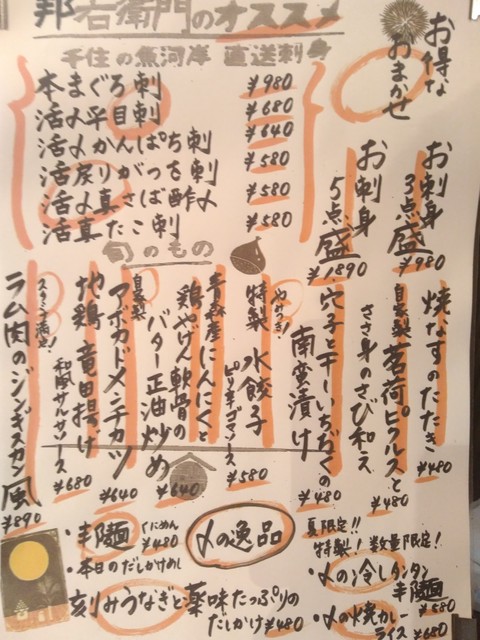 邦右衛門のオススメ
千住の魚河岸 直送刺身
本まぐろ刺 ¥980
活〆平目刺 ¥680
活〆かんぱち刺 ¥640
活戻りがつを刺 ¥580
活〆真さば酢〆 ¥580
活真たこ刺 ¥580
お得な
おまかせ
お刺身
3点盛 ¥980
お刺身
5点盛 ¥1890
旬のもの
焼なすのたたき ¥480
自家製 茗荷ピクルスと
ささ身のさび和え ¥480
穴子と干しいちぢくの
南蛮漬け ¥480
やみつき!
特製 水餃子
ピリ辛ゴマソース ¥580
青森産にんにくと
鶏やげん軟骨の
バター正油炒め ¥640
自家製
アボカドメンチカツ ¥640
地鶏 竜田揚げ
和風サルサソース ¥680
スタミナ満点!
ラム肉のジンギスカン風 ¥890
〆の逸品
・邦麺 くにめん ¥480
・本日のだしかけめし
刻みうなぎと薬味たっぷりの
だしかけ ¥480
夏限定!!
特製!数量限定!
・〆の冷しタンタン
邦麺 ¥580
・〆の焼カレー
ライス ¥680